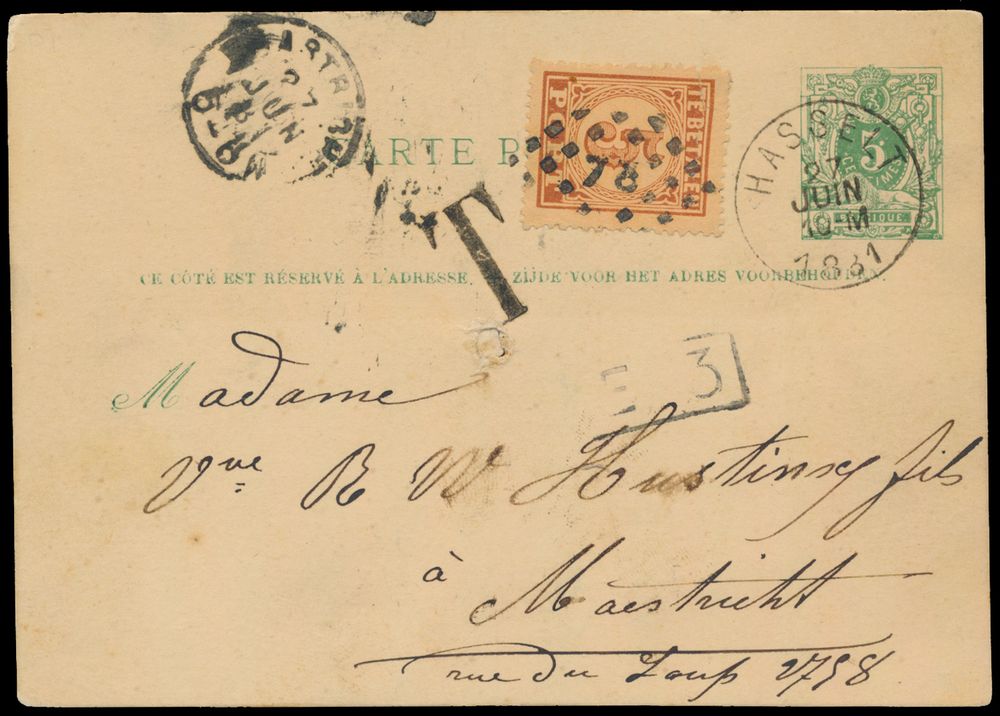 CARTE P
5
CENTIMES
BELGIQUE
HASSELT
27
JUIN
10-M
1881
27
JUIN
TE BETALEN
PORT
78
T
CE CÔTÉ EST RÉSERVÉ À L'ADRESSE. ZIJDE VOOR HET ADRES VOORBEHOUDEN.
3
Madame
Vve R W Hustinx fils
à
Maestricht
rue du Loup 2758